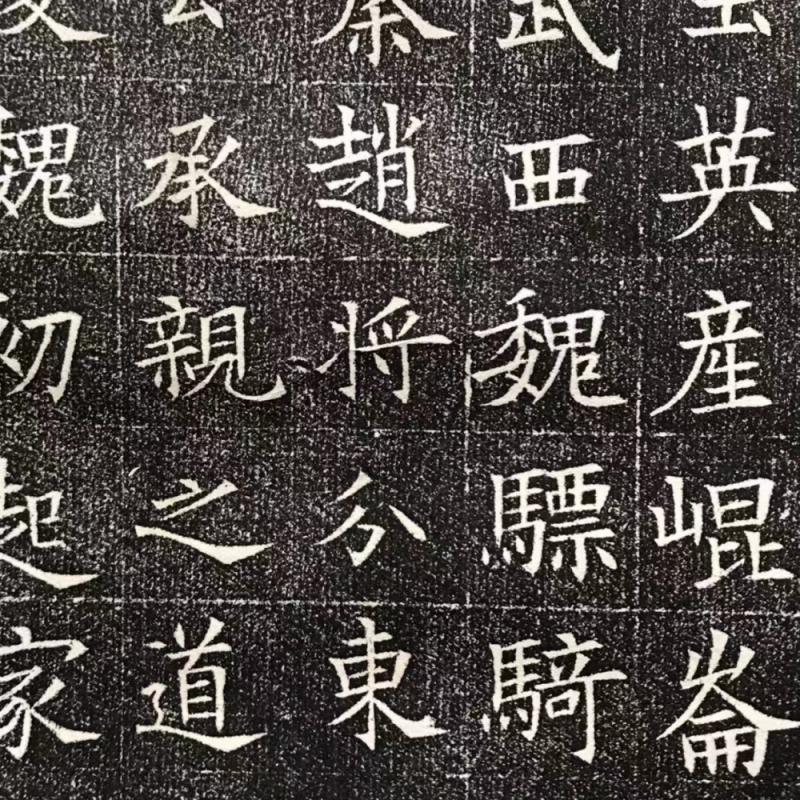 玉英産崐崙
武西魏驃騎
秦趙将分東
公承親之道
魏初起家